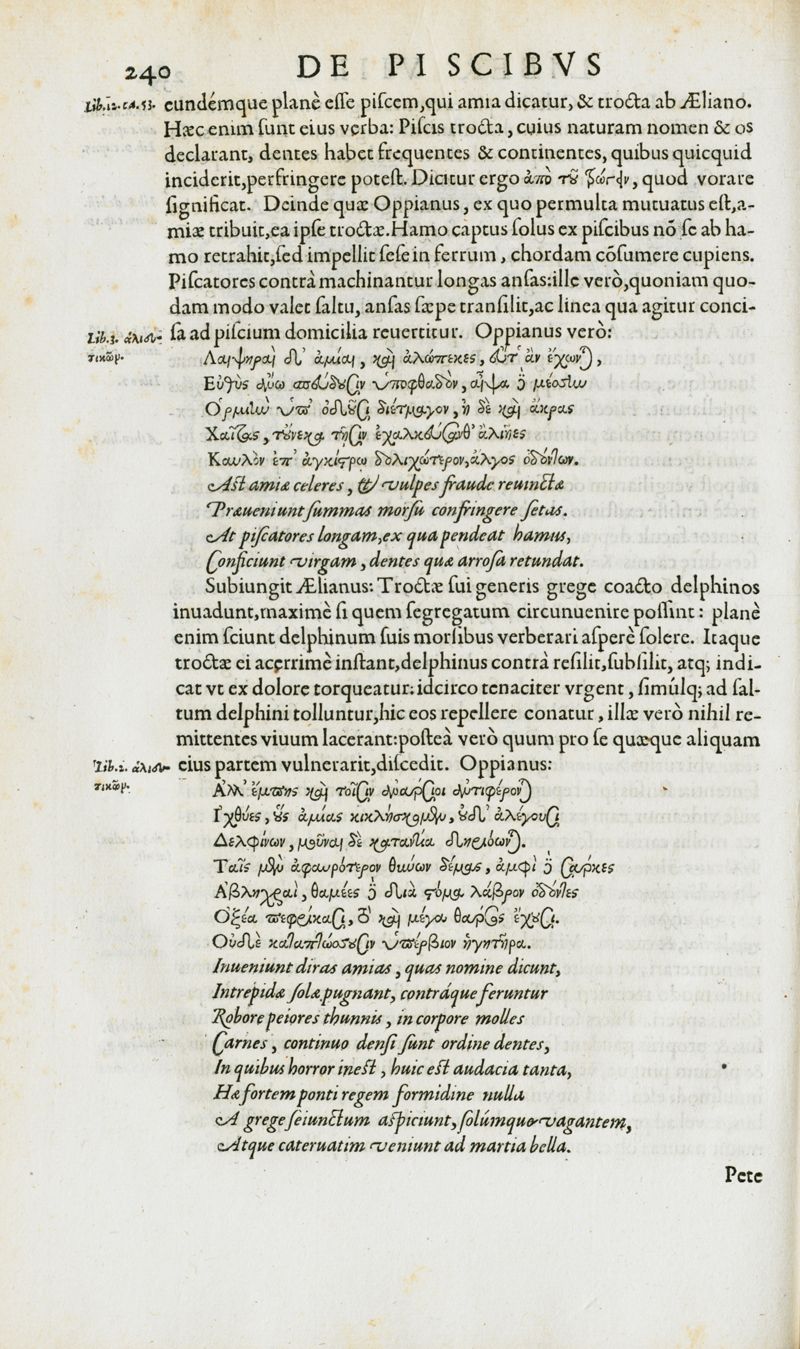 240 DE PISCIBVS
Lib.12.ca.53. eundémque planè esse piscem,qui amia dicatur, & trocta ab Æliano.
Hæc enim sunt eius verba: Piscis trocta, cuius naturam nomen & os
declarant, dentes habet frequentes & continentes, quibus quicquid
inciderit,perfringere potest. Dicitur ergo ἀπὸ τοῦ τρώγειν, quod vorare
significat. Deinde quæ Oppianus, ex quo permulta mutuatus est,a-
miæ tribuit,ea ipse troctæ.Hamo captus solus ex piscibus nō se ab ha-
mo retrahit,sed impellit sese in ferrum, chordam cōsumere cupiens.
Piscatores contrà machinantur longas ansas:ille verò,quoniam quo-
dam modo valet saltu, ansas sæpe transilit,ac linea qua agitur conci-
Lib.3. ἁλιευ- sa ad piscium domicilia reuertitur. Oppianus verò:
τικῶν. Λαιψηραὶ δ' ἀμίαι, καὶ ἀλώπεκες, εὖτ' ἂν ἔχωνται,
Εὐθὺς ἄνω σπεύδουσιν ὑποφθαδὸν, αἶψα δὲ μέσσην
Ὁρμιὴν ὑπ' ὀδοῦσι διέτμαγον, ἢ δὲ καὶ ἄκρας
Χαίτας, τούνεκα τῇσιν ἐχαλκεύσανθ' ἁλιῆες
Καυλὸν ἐπ' ἀγκίστρῳ δολιχώτερον,ἄλγος ὀδόντων.
Ast amiæ celeres, & vulpes fraude reuinctæ
Præueniunt summas morsu confringere setas.
At piscatores longam,ex qua pendeat hamus,
Conficiunt virgam, dentes quæ arrosa retundat.
Subiungit Ælianus: Troctæ sui generis grege coacto delphinos
inuadunt,maximè si quem segregatum circunuenire possint: planè
enim sciunt delphinum suis morsibus verberari asperè solere. Itaque
troctæ ei acerrimè instant,delphinus contrà resilit,subsilit, atq; indi-
cat vt ex dolore torqueatur: idcirco tenaciter vrgent, simúlq; ad sal-
tum delphini tolluntur,hic eos repellere conatur, illæ verò nihil re-
mittentes viuum lacerant:posteà verò quum pro se quæque aliquam
Lib.2. ἁλιευ- eius partem vulnerarit,discedit. Oppianus:
τικῶν. Ἀλλ' ἔμπης καὶ τοῖσιν ἀνάρσιοι ἀντιφέρονται
Ἰχθύες, οὓς ἀμίας κικλήσκομεν, οὐδ' ἀλέγουσι
Δελφίνων, μοῦναι δὲ κατάντια δηριόωνται.
Ταῖς μὲν ἀφαυρότερον θύννων δέμας, ἀμφὶ δὲ σάρκες
Ἀβληχραὶ, θαμέες δὲ διὰ στόμα λάβρον ὀδόντες
Ὀξέα πεφρίκασι, τῷ καὶ μέγα θάρσος ἔχουσι.
Οὐδὲ καταπτώσσουσιν ὑπέρβιον ἡγητῆρα.
Inueniunt diras amias, quas nomine dicunt,
Intrepidæ solæ pugnant, contráque feruntur
Robore peiores thunnis, in corpore molles
Carnes, continuo densi sunt ordine dentes,
In quibus horror inest, huic est audacia tanta,
Hæ fortem ponti regem formidine nulla
A grege seiunctum aspiciunt, solúmque vagantem,
Atque cateruatim veniunt ad martia bella.
Pete